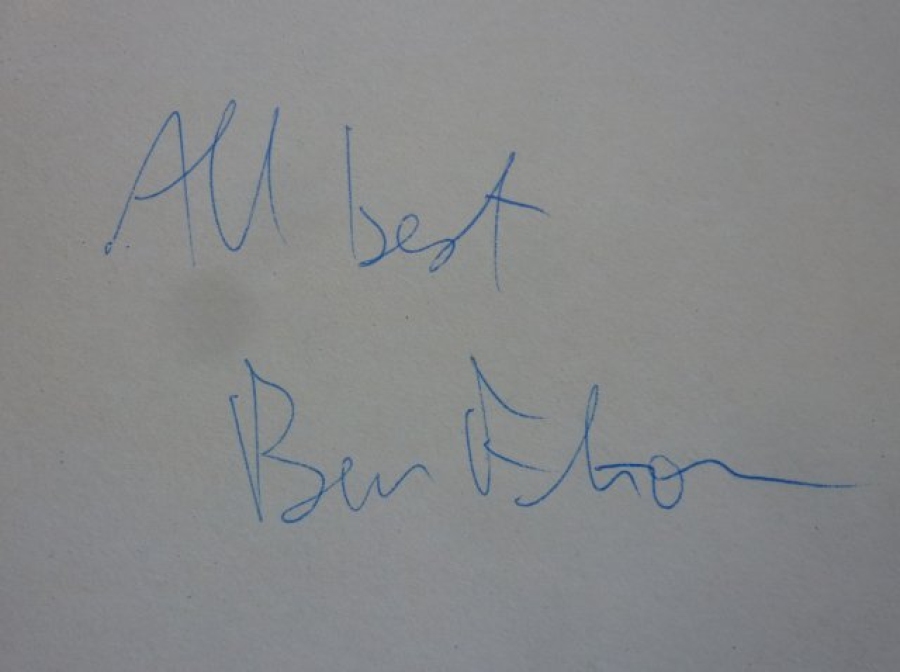 All best
Ben Elton